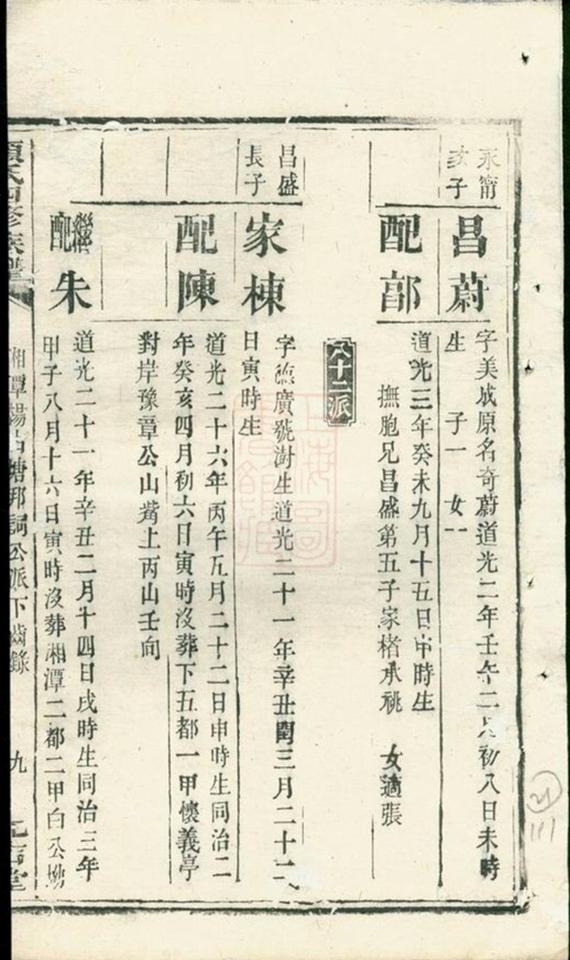 永甯
次子
昌蔚
字美成原名奇蔚道光二年壬午二月初八日未時
生 子一 女一
配郭
道光三年癸未九月十五日申時生
撫胞兄昌盛第五子家楮承祧 女適張
八十二派
昌盛
長子
家棟
字德廣號澍生道光二十一年辛丑閏三月二十二
日寅時生
配陳
道光二十六年丙午五月二十二日申時生同治二
年癸亥四月初六日寅時沒葬下五都一甲懷義亭
對岸豫章公山觜上丙山壬向
繼配朱
道光二十一年辛丑二月十四日戌時生同治三年
甲子八月十六日寅時沒葬湘潭二都二甲白公
氏四修族譜
湘潭楊 塘邦詞公派下齒錄
九
堂